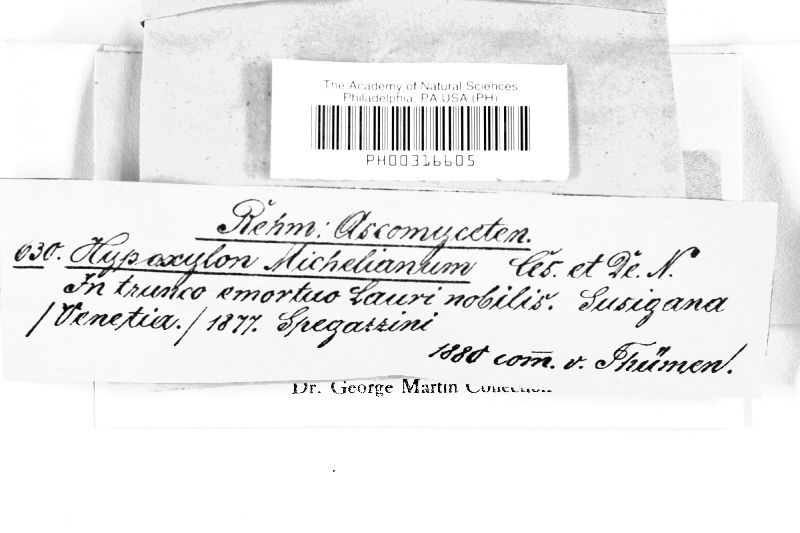 The Academy of Natural Sciences
Philadelphia, PA USA (PH)
PH00316605
Rehm: Ascomyceten.
630. Hypoxylon Michelianum Ces. et De. N.
In trunco emortuo Lauri nobilis. Susigana
/Venetia./ 1877. Spegazzini
1880 com̄. v. Thümen.
Dr. George Martin Collection